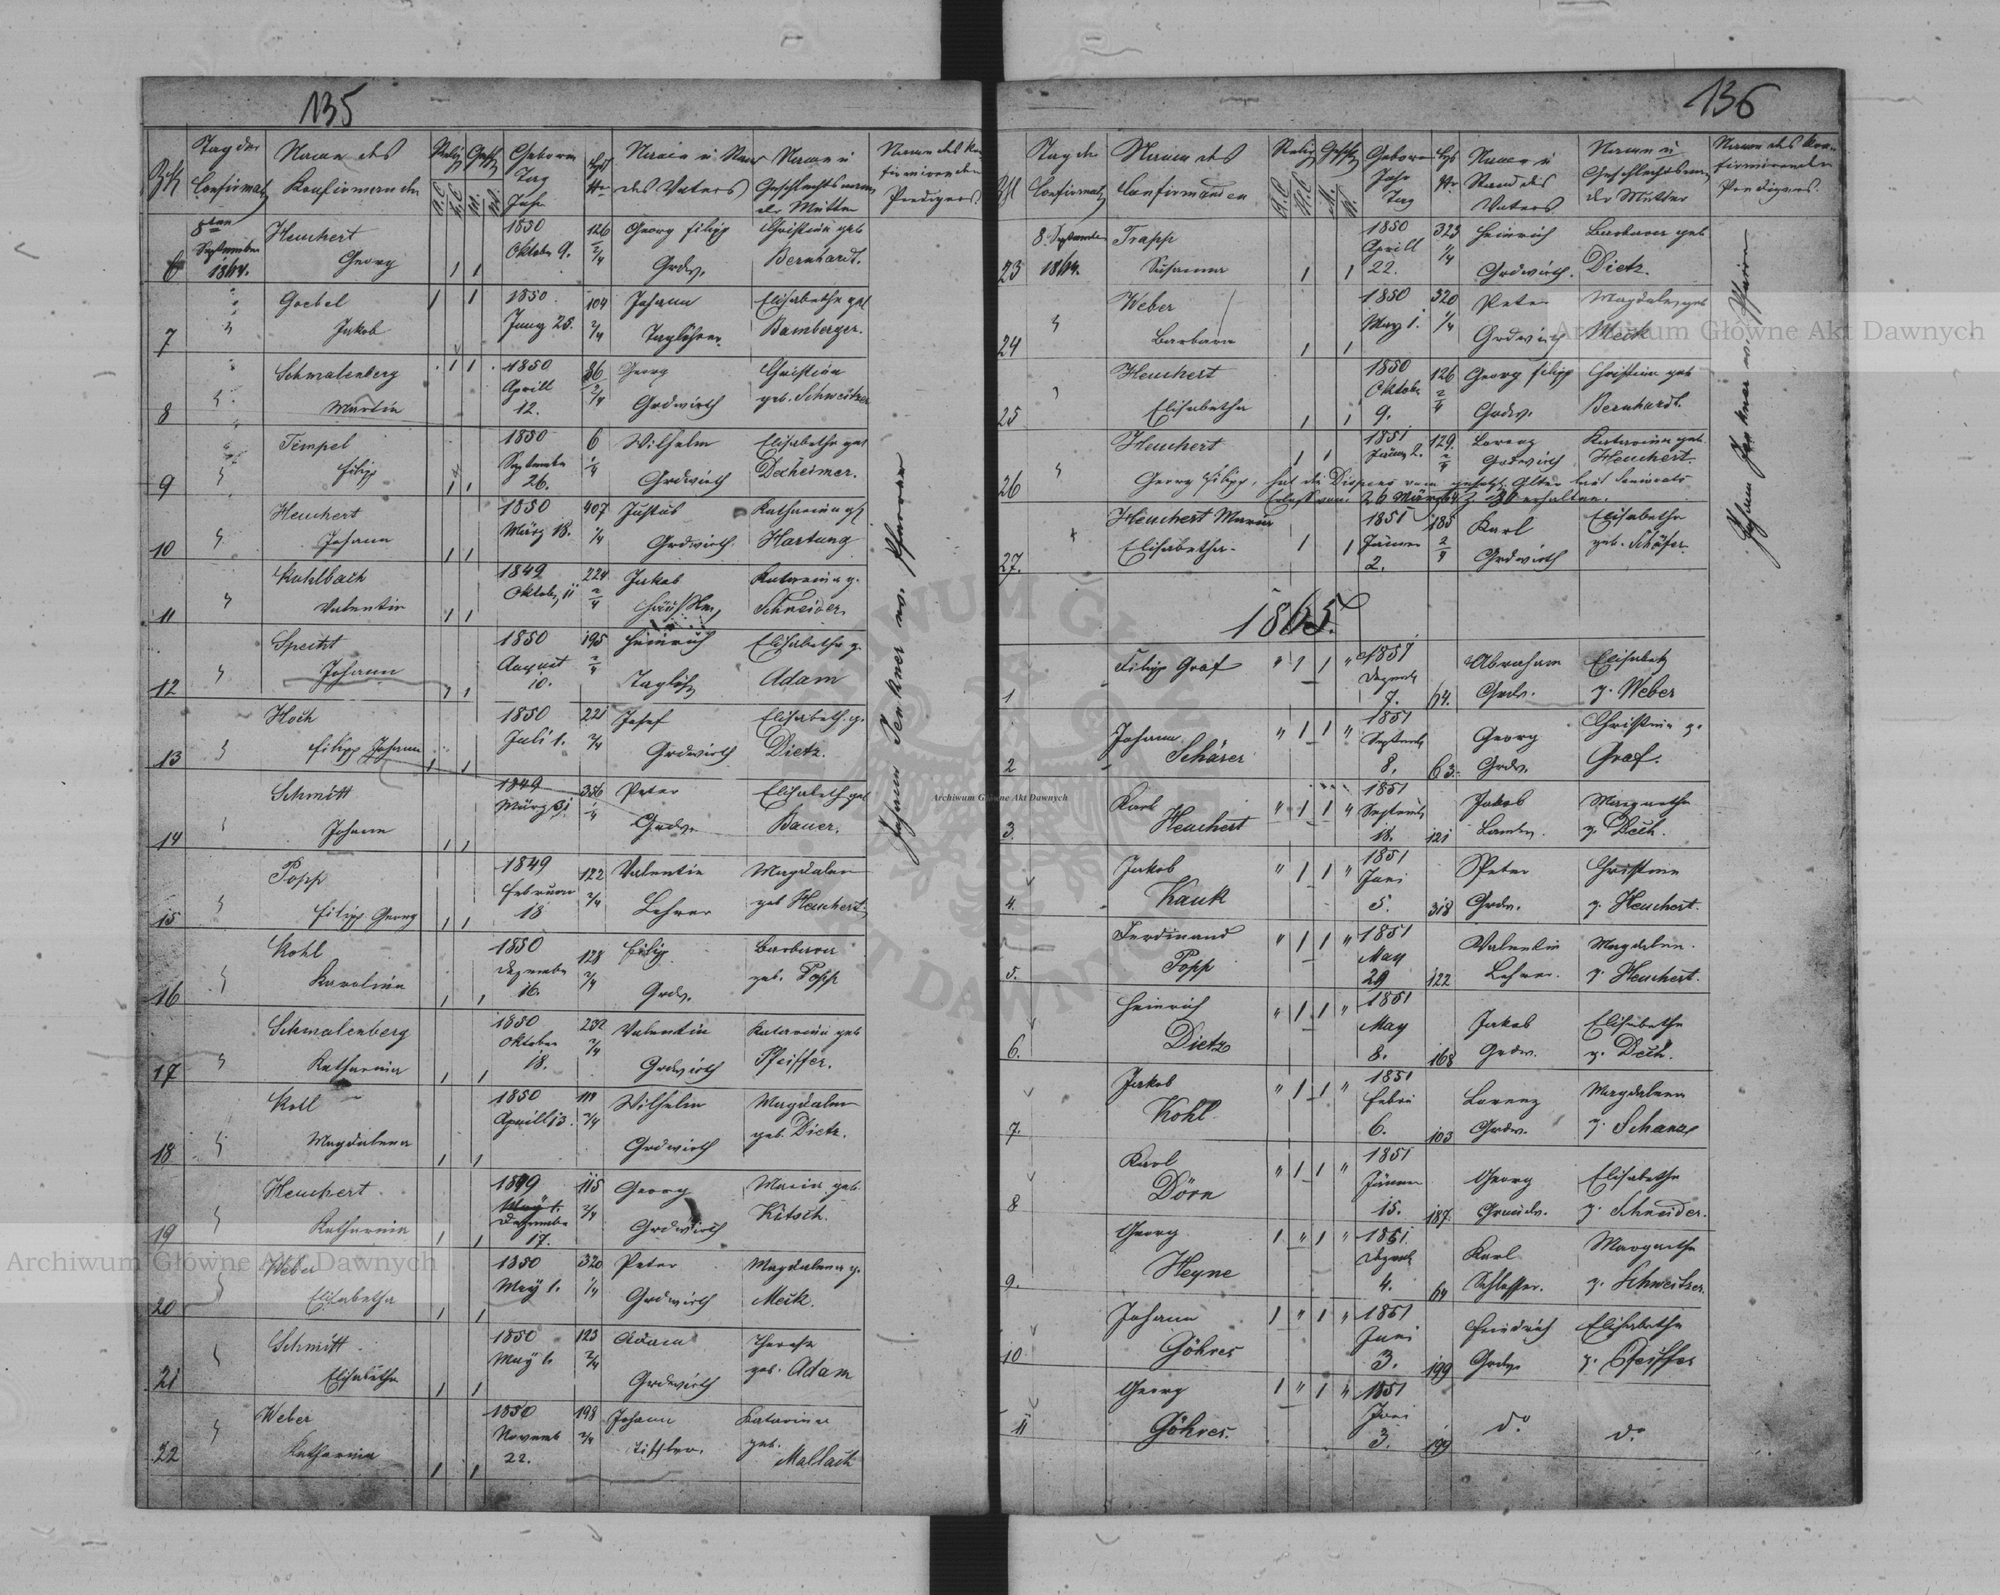 135
Tag der
Confirmat
Name des
Konfirmanden
Relig
A.C.
H.C.
M.
W.
Geboren
Tag
Jahr
Name u
des Vaters
Name u
Geschlechtsname
der Mutter
Name des kon
firmirenden
Predigers
8ten
September
1864.
6
Heuchert
Georg
1850
Oktober 9.
126
2/4
Georg Filipp
Grdw.
Christina geb
Bernhardt.
7
Goebel
Jakob
1850
Juny 25.
104
2/4
Johann
Taglöhner
Elisabetha geb
Bamberger.
8
Schmalenberg
Martin
1850
Aprill
12.
86
2/4
Georg
Grdwirth
Christina
geb. Schweitzer
9
Tempel
Filipp
1850
September
26.
6
1/4
Wilhelm
Grdwirth
Elisabetha geb
Decheimer.
10
Heuchert
Johann
1850
März 18.
407
1/4
Justus
Grdwirth
Katharina g.
Hartung
11
Kuhlbach
Valentin
1849
Oktober 11
224
2/4
Jakob
Katarina g.
Schneider
12
Specht
Johann
1850
August
10.
195
2/4
Heinrich
Taglöh
Elisabetha g.
Adam
13
Hoch
Filipp Johann
1850
Juli 1.
221
2/4
Josef
Grdwirth
Elisabeth g.
Dietz.
14
Schmitt
Johann
1849
März 31
356
1/4
Peter
Grdw.
Elisabeth geb
Bauer.
15
Popp
Filipp Georg
1849
Februar
18
122
2/4
Valentin
Lehrer
Magdalena
geb Heuchert
16
Kohl
Karolina
1850
Dezember
16.
128
2/4
Filipp
Grdw.
Barbara
geb. Popp
17
Schmalenberg
Katharina
1850
Oktober
18.
232
2/4
Valentin
Grdwirth
Katarina geb
Pfeiffer.
18
Koll
Magdalena
1850
Aprill 13.
111
2/4
Wilhelm
Grdwirth
Magdalena
geb. Dietz.
19
Heuchert
Katharina
1849
May 1.
Dezember
17.
115
2/4
Georg
Grdwirth
Maria geb.
Kitsch.
20
Weber
Elisabetha
1850
May 1.
320
1/4
Peter
Grdwirth
Magdalena g.
Meck.
21
Schmitt
Elisabetha
1850
May 6
123
2/4
Adam
Grdwirth
Theresa
geb. Adam
22
Weber
Katharina
1850
Novemb
22.
198
2/4
Johann
Tischler
Katarina
geb.
Mallach
136
Tag der
Confirmat
Name des
Confirmanden
Relig
A.C.
H.C.
M.
W.
Geboren
Jahr
Tag
Name u
Stand des
Vaters
Name u
Geschlechtsnam
der Mutter
Name des kon-
firmirenden
Predigers.
8. September
1864.
23
Trapp
Susanna
1850
Aprill
22.
323
1/4
Heinrich
Grdwirth.
Barbara geb
Dietz.
24
Weber
Barbara
1850
May 1.
320
1/4
Peter
Grdwirth
Magdalena geb
Meck
25
Heuchert
Elisabetha
1850
Oktober
9.
126
2/4
Georg Filipp
Grdw.
Christina geb
Bernhardt.
26
Heuchert
1851
Jänner 2.
129.
2/4
Lorenz
Grdwirth
Katarina geb.
Heuchert.
Georg Filipp, hat die Dispens vom gesetzl. Alter laut Seniorats
Erlass vom 26 März 64 Z. 120 erhalten.
27.
Heuchert Maria
Elisabetha.
1851
Jänner
2.
185
2/4
Karl
Grdwirth
Elisabetha
geb. Schäfer
1865.
1
Filipp Graf
1851
Dezemb
7.
64.
Abraham
Grdw.
Elisabet
g. Weber
2
Johann
Schärer
1851
Septemb
8.
63.
Georg
Grdw.
Christina g.
Graf.
3.
Karl
Heuchert
1851
Septemb
18.
121
Jakob
Margaretha
g. Dech.
4.
Jakob
Kauk
1851
Juni
5.
318
Peter
Grdw.
Christina
g. Heuchert.
5.
Ferdinand
Popp
1851
May
29
122
Valentin
Lehrer.
Magdalena.
g. Heuchert.
6.
Heinrich
Dietz
1851
May
8.
168
Jakob
Grdw.
Elisabetha
g. Dech.
7.
Jakob
Kohl
1851
Febru
6.
103
Lorenz
Grdw.
Magdalena
g. Schanze
8
Karl
Dörn
1851
Jänner
15.
187
Georg
Grundw.
Elisabetha
g. Schneider.
9.
Georg
Heyne
1851
Dezemb
4.
64
Karl
Schlosser.
Margaretha
g. Schweitzer.
10
Johann
Göhres
1851
Juni
3.
199
Friedrich
Grdw
Elisabetha
g. Pfeiffer
11
Georg
Göhres.
1851
Juni
3.
199
do
do
Archiwum Główne Akt Dawnych
Archiwum Główne Akt Dawnych
Archiwum Główne Akt Dawnych
ARCHIWUM GŁÓWNE AKT DAWNYCH